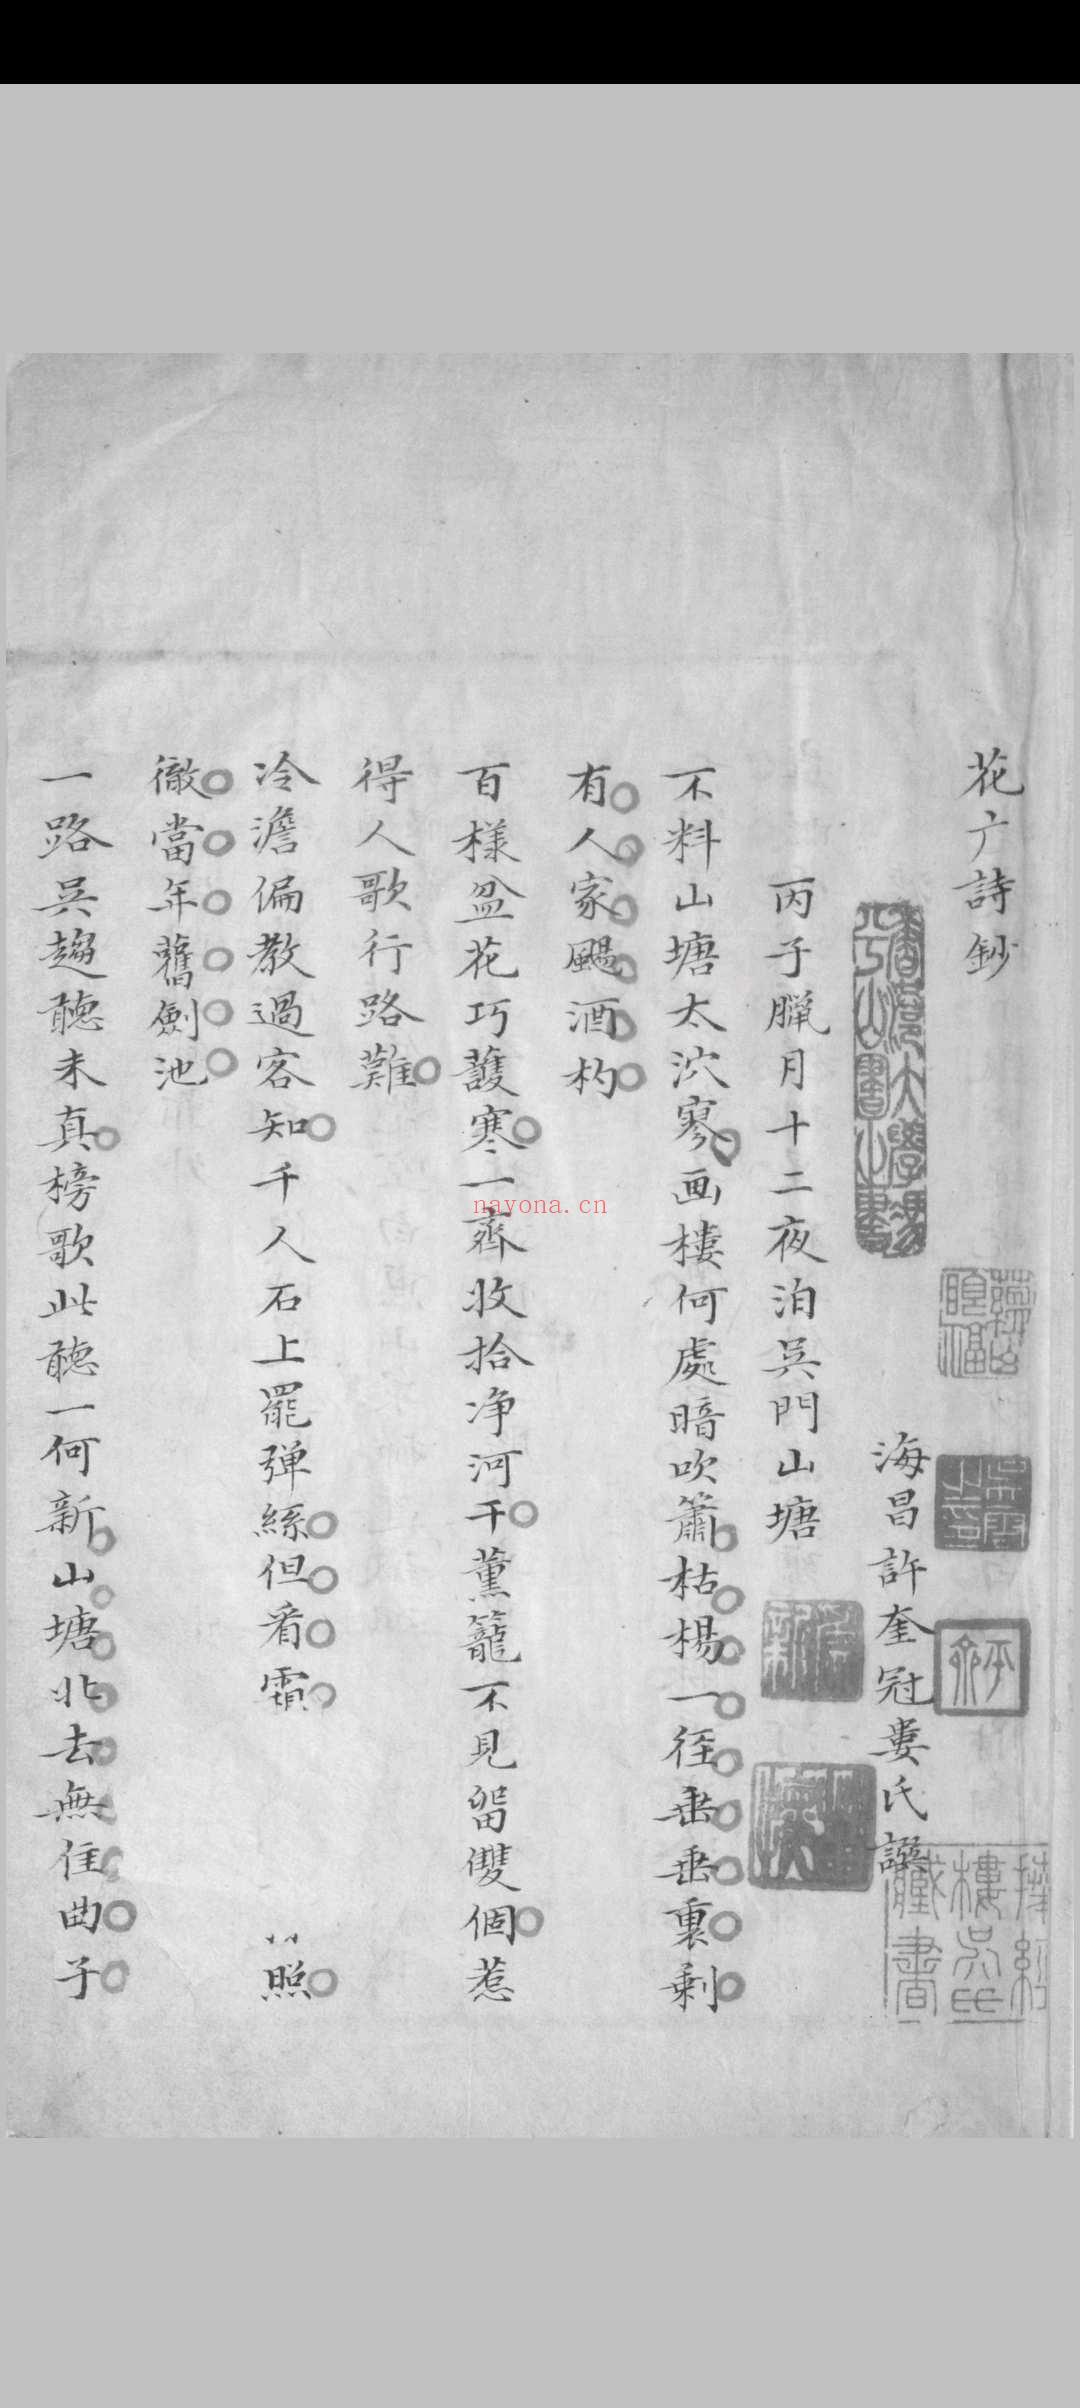 花广詩鈔
海昌許奎冠婁氏譔
丙子臘月十二夜泊吳門山塘
不料山塘太泬寥画樓何處暗吹簫枯楊一徑垂垂裏剩
有人家颺酒杓
百樣盆花巧護寒一齊收拾净河干薰籠不見留雙個惹
得人歌行路難
冷澹偏教過客知千人石上罷彈絲但看霜照
徹當年舊劍池
一路吳趨聽未真榜歌此聽一何新山塘北去無佳曲子
香港大學馮
平山圖書館藏書
捧紅
樓吳氏
藏書
nayona.cn